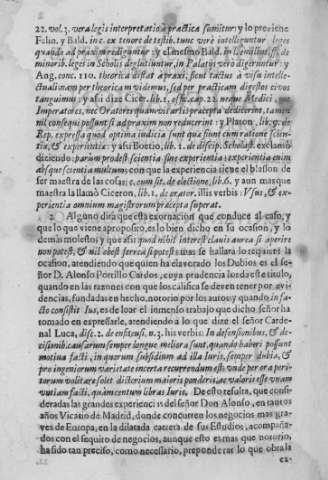 22. vol. 3. vera legis interpretatio à practica sumitur; y lo previene
Felin. y Bald. in c. ex tenore de testib. tunc verò intelleguntur leges
quando ad praxim rediguntur: y el mesmo Bald. in
minorib. leges in Scholis deglutiuntur, in Palatijs verò digeruntur: y
Ang. conc. 110. theorica distat à praxi, sicut tactus à visu intelle-
ctualis nam per theoricam videmus, sed per practicam digestos civos
tangimus: y assi dize Cicer. lib. 1. offic. cap. 22. nec Medici,
Imperatores, nec Oratores quamvis artis præcepta dedicerint, tamen
nil consequi possunt si ad praxim non reducerint: y Platon lib. 9. de
Rep. expressa quod optima indicia sunt quæ fiunt cum ratione scien-
tia, & experientia: y assi Boetio, lib. 1. de discip. Scholast. exclamò
diziendo: parum prodest scientia sine experientia: experientia enim
absque scientia multum: con que la experiencia tiene el blason de
ser maestra de las cosas: c. cum sit. de electione, lib. 6. y aun masque
maestra la llamò Ciceron, lib. 1. de orator. illis verbis: Usus, & ex-
perientia omnium magistrorum præcepta superat.
2. Alguno dirà que esta exornacion que conduce al caso, y
que lo que viene aproposito, es lo bien dicho en su ocasion, y lo
demàs molesto; y que assi quod nihil interest clavis aurea si aperire
non potest, & nil obest ferrea si potest: mas se hallarà lo requiere la
ocasion, atendiendo que quien ha clavetado los Dubios es el se-
ñor D. Alonso Portillo Cardos, cuya prudencia lo da este titulo,
quando en las razones con que los califica se deven tener por evi-
dencias, fundadas en hecho, notorio por los autos; y quando in fa-
cto consistit Ius, es de loar el inmenso trabajo que dicho Señor ha
tomado en expressarle, atendiendo à lo que dize el señor Carde-
nal Luca, disc. 2. de
motiva facti, in quorum subsidium ad illa Iuris, semper dubia, &
pro ingeniorum varietate incerta recurrendum est: unde per ora peri-
torum volitare solet dictorium maioris ponderis, ac valoris esse unam
unciam facti, quàm centum libras Iuris. De esto resulta, que consi-
deradas las grandes experiencias del señor Don Alonso, en tantos
años Vicario de Madrid, donde concurren los negocios mas gra-
ves de Europa, en la dilatada carrera de sus Estudios, acompaña-
dos con el sequito de negocios, aunque esto es mas que notorio,
ha sido tan preciso, como necessario, preponderar lo que obra la